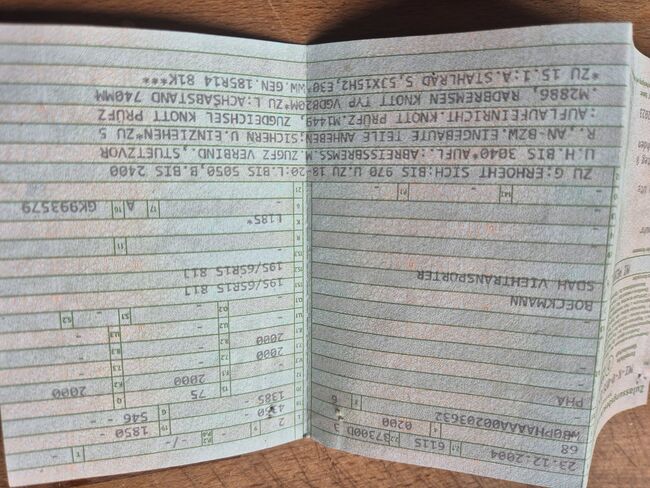 23.12.2004
68 6115 B7300D 3
WB0PHAAAA00203632
0200 6
PHA
BOECKMANN
SDAH VIEHTRANSPORTER
2 - -/- -
1850
1385 546
75 2000
2000 2000
2000
2000
195/65R15 81J
195/65R15 81J
L185*
A GK993579
ZU G.ERHOEHT SICH:BIS 970 U.ZU 18-20:L.BIS 5050,B.BIS 2400
U.H.BIS 3040*AUFL.:ABREISSBREMSS.M.ZUGFZ VERBIND,STUETZVOR
R.,AN-BZW.EINGEBAUTE TEILE ANHEBEN:SICHERN U.EINZIEHEN*ZU 5
:AUFLAUFEINRICHT.KNOTT PRÜFZ.M1449, ZUGDEICHSEL KNOTT PRÜFZ
.M2886, RADBREMSEN KNOTT TYP VGD820M*ZU L:ACHSABSTAND 740MM
*ZU 15.1:A.STAHLRAD 5,5JX15H2,E30*WW.GEN.185R14 81K****